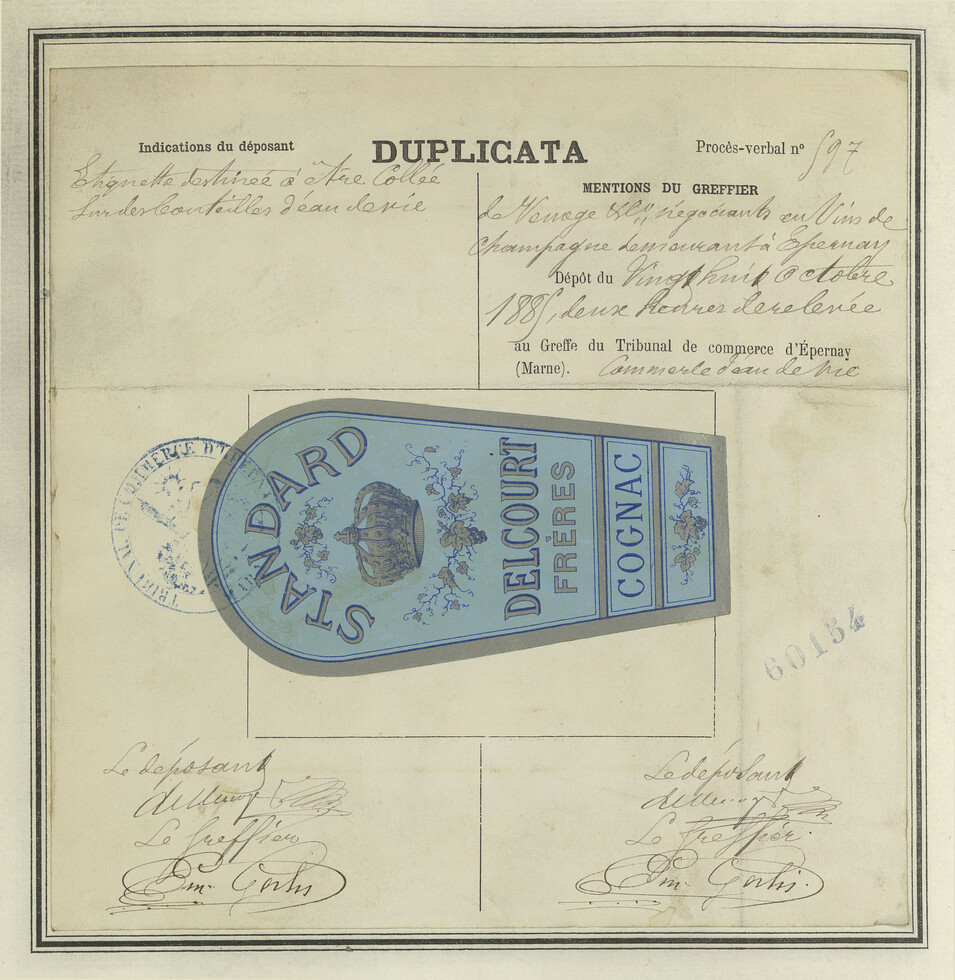 Indications du déposant
DUPLICATA
Procès-verbal nº 597
Etiquette destinée à être Collée
sur des bouteilles d'eau de vie
MENTIONS DU GREFFIER
de Venoge & Cie négociants en Vins de
Champagne demeurant à Epernay
Dépôt du Vingt huit Octobre
1885, deux heures de relevée
au Greffe du Tribunal de commerce d'Épernay
(Marne). Commerce d'eau de vie
STANDARD
DELCOURT
FRÈRES
COGNAC
TRIBUNAL DE COMMERCE
60154
Le déposant
de Venoge
Le Greffier
Le déposant
de Venoge
Le Greffier.